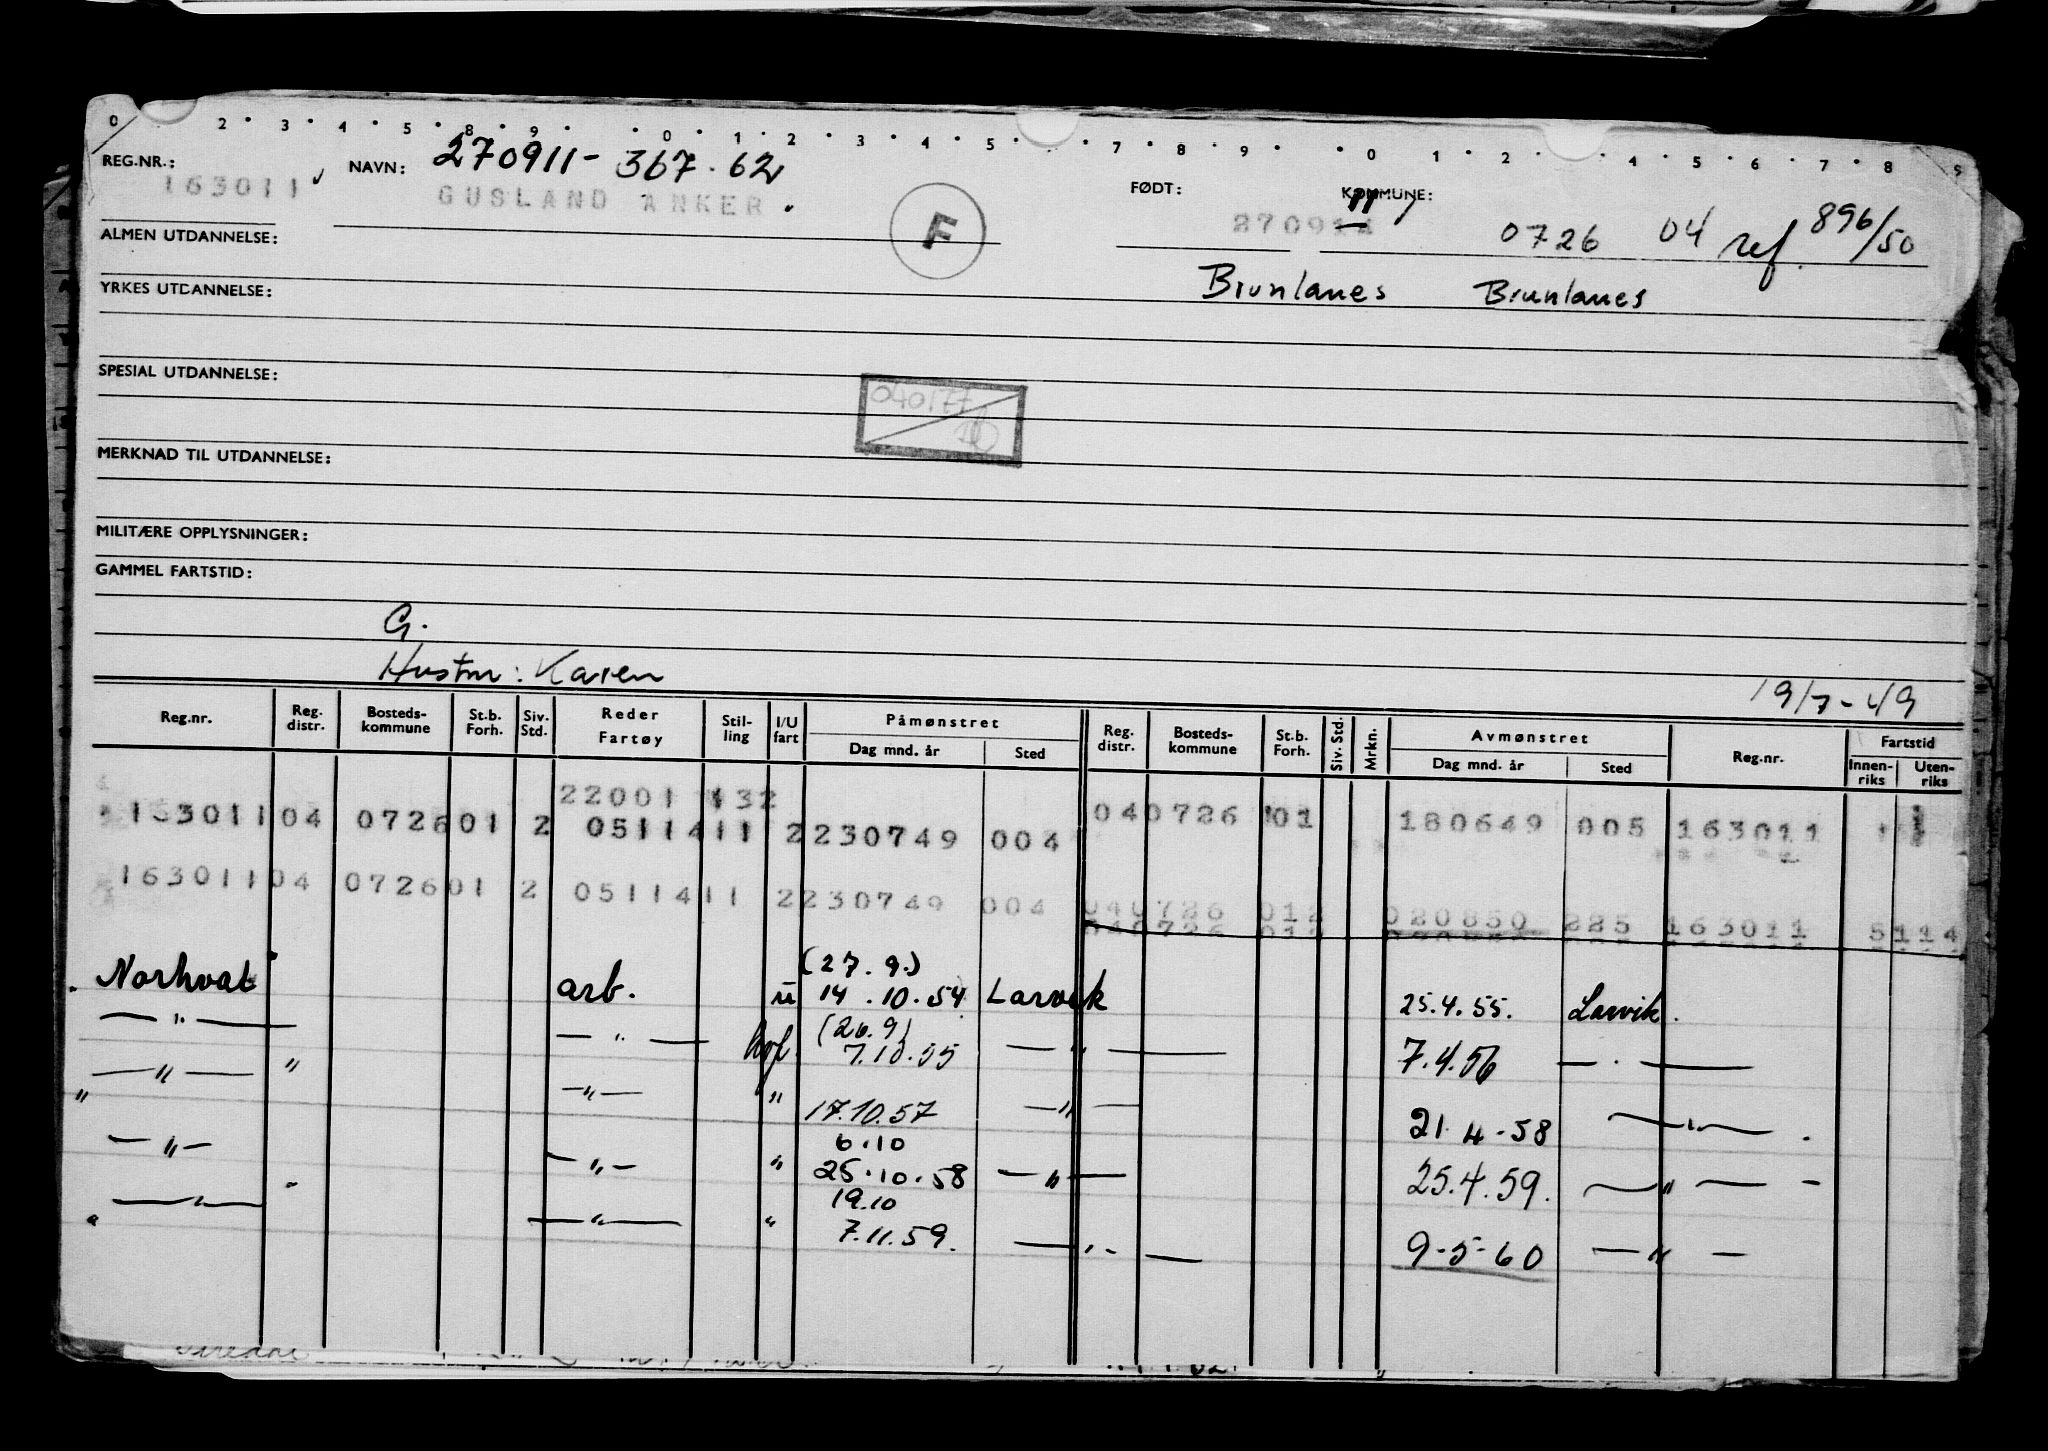 0 2 · 3 · 4 · 5 · 8 · 9 · · 0 · 1 · 2 · 3 · 4 · 5 · · 7 · 8 · 9 · · 0 · 1 · 2 · · 4 · 5 · 6 · 7 · 8 · 9
REG.NR.: 163011 NAVN: 270911-367.62
GUSLAND ANKER.
F
FØDT: 270914 11
KOMMUNE: 0726 04 ref. 896/50
ALMEN UTDANNELSE:
Brunlanes Brunlanes
YRKES UTDANNELSE:
SPESIAL UTDANNELSE:
040177
MERKNAD TIL UTDANNELSE:
MILITÆRE OPPLYSNINGER:
GAMMEL FARTSTID:
G.
Hustru: Karen
19/7-49
Reg.nr. Reg. distr. Bosteds-kommune St.b. Forh. Siv. Std. Reder Fartøy Stil-ling I/U fart Påmønstret Dag mnd. år Sted Reg. distr. Bosteds-kommune St.b. Forh. Siv. Std. Mrkn. Avmønstret Dag mnd. år Sted Reg.nr. Fartstid Innen-riks Uten-riks
22001 132
163011 04 0726 01 2 0511411 2 230749 004 040726 01 180649 005 163011
163011 04 0726 01 2 0511411 2 230749 004 040726 012 020850 225 163011 5114
(27.9.)
Norhval arb. u 14.10.54 Larvik 25.4.55. Larvik.
(26.9)
— " — — " — hgf. 7.10.55 — " — 7.4.56 — " —
— " — " — " — " 17.10.57 — " — 21.4-58 — " — .
6.10
— " — — " — " 25.10.58 — " — 25.4.59. — " — -
19.10
— " — — " — " 7.11.59. — " — 9-5-60 — " —